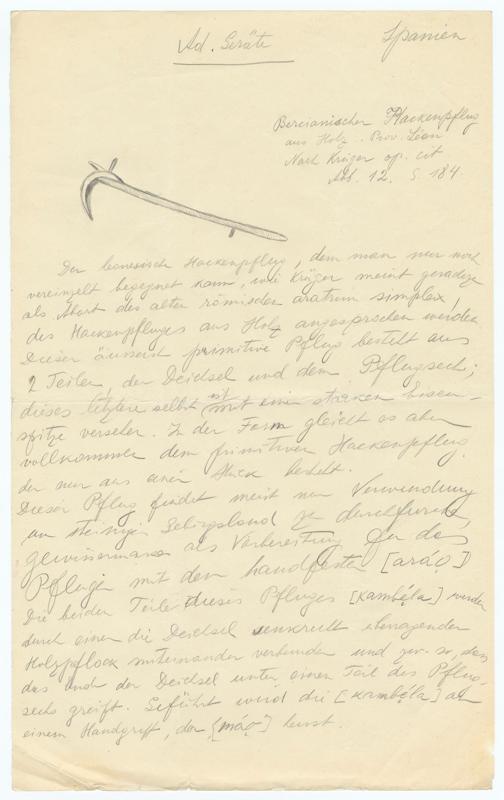 Ad. Geräte
Spanien
Bercianischer Hackenpflug
aus Holz. Prov. Léon
Nach Krüger op. cit
Abb. 12. S. 184.
Der leonesische Hackenpflug, dem man nur noch
vereinzelt begegnet kann, wie Krüger meint geradezu
als Abart des alten römischen aratrum simplex,
des Hackenpfluges aus Holz angesprochen werden
Dieser äusserst primitive Pflug besteht aus
2 Teilen, der Deichsel und dem Pflugsech;
dieses letztere selbst ist mit einer starken Eisen-
spitze versehen. In der Form gleicht es aber
vollkommen dem primitiven Hackenpflug,
der nur aus einem Stück besteht.
Dieser Pflug findet meist nur Verwendung
um steiniges Gebirgsland zu durchfurchen,
gewissermassen als Vorbereitung für das
Pflügen mit dem handfesten [aráo]
Die beiden Teile dieses Pfluges [kambéla] werden
durch einen die Deichsel senkrecht überragenden
Holzpflock miteinander verbunden und zw. so, dass
das Ende der Deichsel unter einen Teil des Pflug-
sechs greift. Geführt wird die [kambéla] an
einem Handgriff, der [máo] heisst.